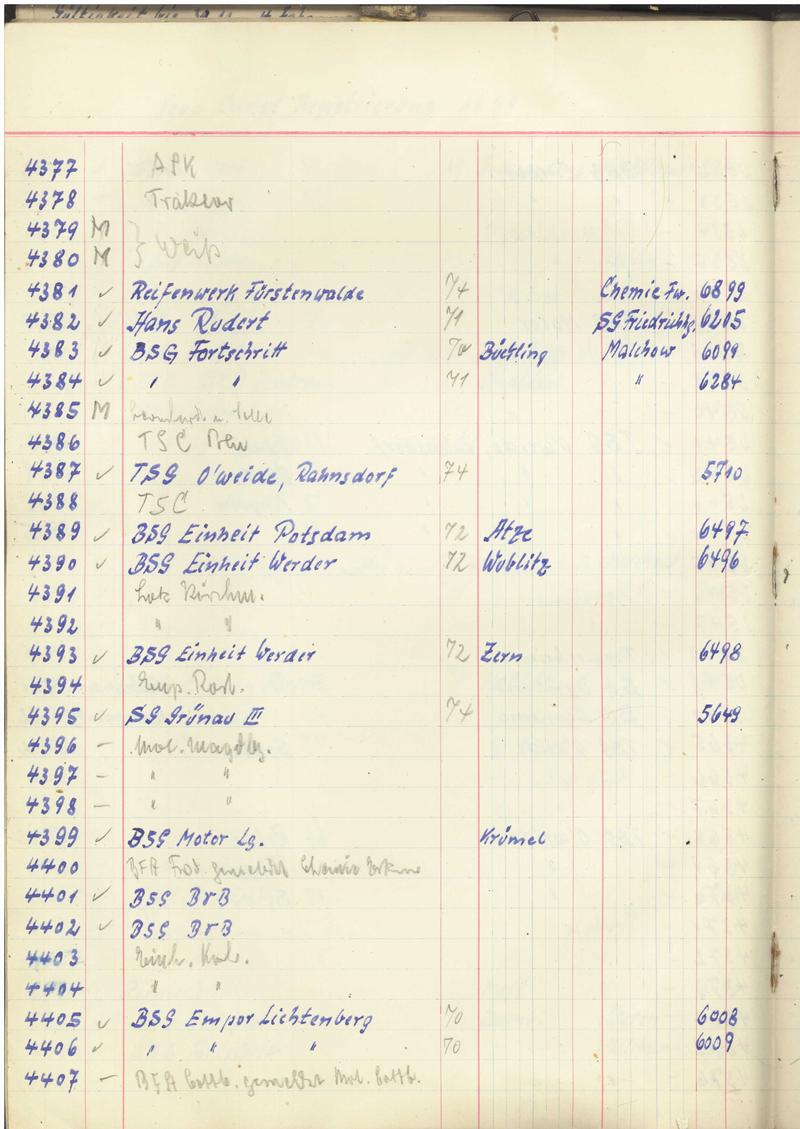 4377 ASK
4378 Traktor
4379 M
4380 M } Weiß
4381 ✓ Reifenwerk Fürstenwalde 74 Chemie Fw. 6899
4382 ✓ Hans Rudert 71 SG Friedrichhg. 6205
4383 ✓ BSG Fortschritt 70 Bückling Malchow 6099
4384 ✓ " " 71 " 6284
4385 M
4386 TSC
4387 ✓ TSG O'weide, Rahnsdorf 74 5710
4388 TSC
4389 ✓ BSG Einheit Potsdam 72 Atze 6497
4390 ✓ BSG Einheit Werder 72 Wublitz 6496
4391 Lok
4392 " "
4393 ✓ BSG Einheit Werder 72 Zern 6498
4394 Emp. Rost.
4395 ✓ SG Grünau III 74 5649
4396 – Mot. Magdbg.
4397 – " "
4398 – " "
4399 ✓ BSG Motor Lg. Krümel
4400 BFA gemeldet Chemie Erkner
4401 ✓ BSG BVB
4402 ✓ BSG BVB
4403 Einh.
4404 " "
4405 ✓ BSG Empor Lichtenberg 70 6008
4406 ✓ " " " 70 6009
4407 – BFA Cottb. gemeldet Mot. Cottb.